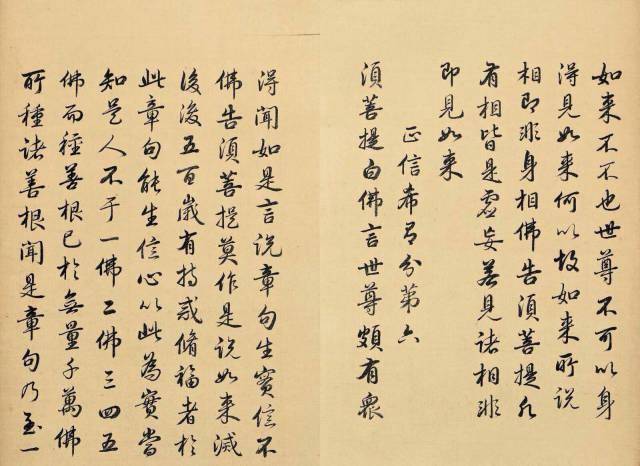 如来不不也世尊不可以身
得見如来何以故如来所说
相即非身相佛告須菩提凡
有相皆是虚妄若見諸相非
即見如来
正信希有分第六
須菩提白佛言世尊頗有衆
得聞如是言说章句生實信不
佛告須菩提莫作是说如来滅
後後五百歲有持戒脩福者於
此章句能生信心以此為實當
知是人不于一佛二佛三四五
佛而種善根已於無量千萬佛
所種諸善根聞是章句乃至一